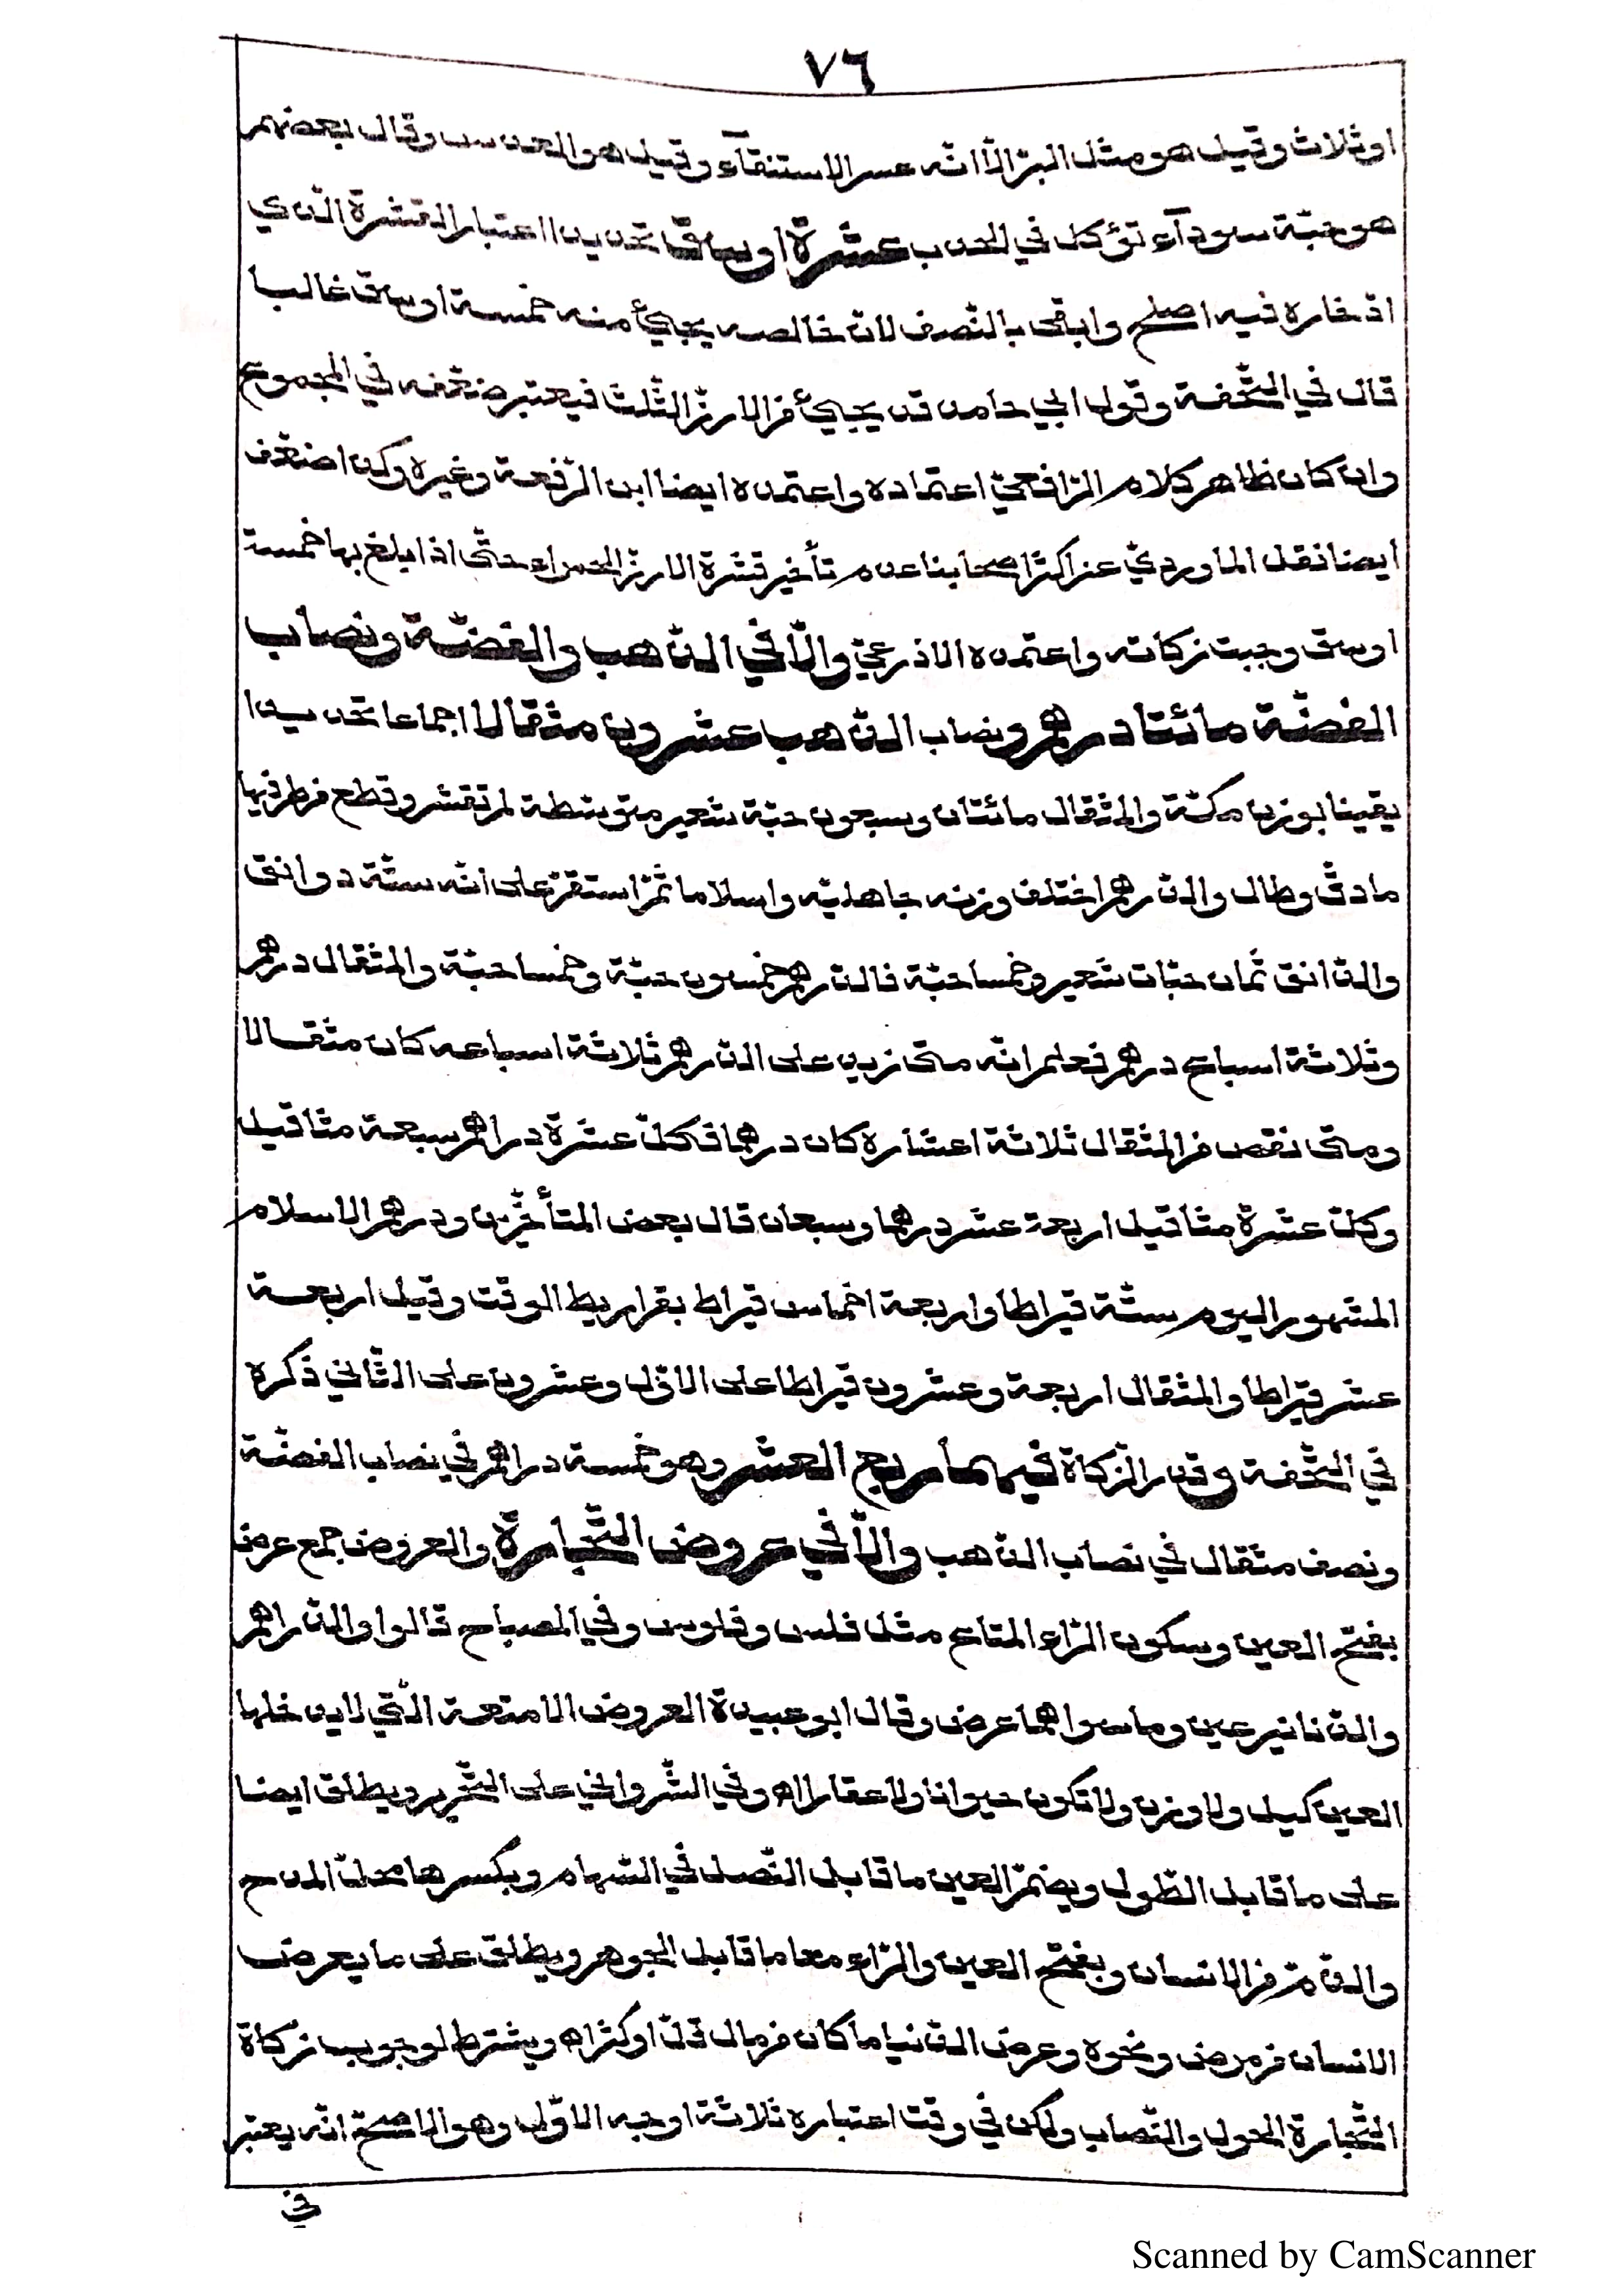 ٧٦
او ثلاث وقيل هو مثل البرّ الّا انّه عسر الاستنقآء وقيل هو العدس وقال بعضهم
هو حبّة سودآء تؤكل في الجدب عشرة اوساق تحديدا اعتبارا لقشرة الذي
ادخاره فيه اصلح وابقى بالنّصف لان خالصه يجيئ منه خمسة اوسق غالبا
قال في التّحفة وقول ابي حامد قد يجيئ من الارزّ الثّلث فيعتبر ضعّفه في المجموع
وان كان ظاهر كلام الرّافعيّ اعتماده واعتمده ايضا ابن الرّفعة وغيره ولكن اضعّف
ايضا نقل الماورديّ عن اكثر اصحابنا عدم تأخير قشرة الارزّ الحمراء حتّى اذا بلغ بها خمسة
اوسق وجبت زكاته واعتمده الاذرعيّ والّا في الذّهب والفضّة ونصاب
الفضّة مائتا درهم ونصاب الذّهب عشرون مثقالا اجماعا تحديدا
يقينا بوزن مكّة والمثقال مائتان وسبعون حبّة شعير متوسّطة لم تقشر وقطع من طرفيها
ما دقّ وطال والدّرهم اختلف وزنه جاهليّه واسلاما ثمّ استقرّ على انّه ستّة دوانق
والدّانق ثمان حبّات شعير وخمسا حبّة فالدّرهم خمسون حبّة وخمسا حبّة والمثقال درهم
وثلاثة اسباع درهم فعلم انّه متى زيد على الدّرهم ثلاثة اسباعه كان مثقالا
ومتى نقص من المثقال ثلاثة اعشاره كان درهما فكلّ عشرة دراهم سبعة مثاقيل
وكلّ عشرة مثاقيل اربعة عشر درهما وسبعان قال بعض المتأخّرين ودرهم الاسلام
المشهور اليوم ستّة قيراطا واربعة اخماس قيراط بقراريط الوقت وقيل اربعة
عشر قيراطا والمثقال اربعة وعشرون قيراطا على الاوّل وعشرون على الثّاني ذكره
في التّحفة وقدر الزّكاة فيهما ربع العشر وهو خمسة دراهم في نصاب الفضّة
ونصف مثقال في نصاب الذّهب والّا في عروض التّجارة والعروض جمع عرض
بفتح العين وسكون الرّاء المتاع مثل فلس وفلوس وفي المصباح قالوا والدّراهم
والدّنانير عين وما سواهما عرض وقال ابو عبيدة العروض الامتعة الّتي لا يدخلها
العين كيل ولا وزن ولا تكون حيوانا ولا عقارا اه وفي الشّرواني على التّحرير ويطلق ايضا
على ما قابل الطّول وبضمّ العين ما قابل النّصل في السّهام وبكسرها محلّ المدح
والذّمّ من الانسان وبفتح العين والرّاء معا ما قابل الجوهر ويطلق على ما يعرض
الانسان من مرض ونحوه وعرض الدّنيا ما كان من مال قلّ او كثر اه ويشترط لوجوب زكاة
التّجارة الحول والنّصاب ولكن في وقت اعتباره ثلاثة اوجه الاوّل وهو الاصحّ انّه يعتبر
في
Scanned by CamScanner